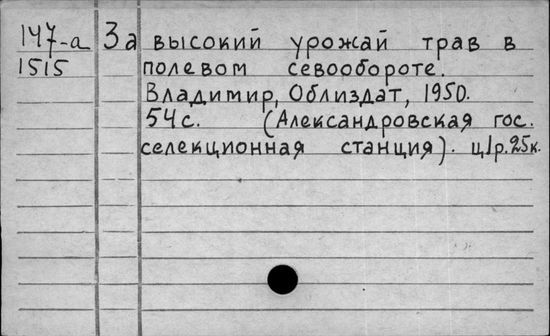 147-а За высокий урожай трав в
1515 полевом севообороте.
Владимир, Облиздат, 1950.
54 с. (Александровская гос.
селекционная станция). ц/р. 25к.